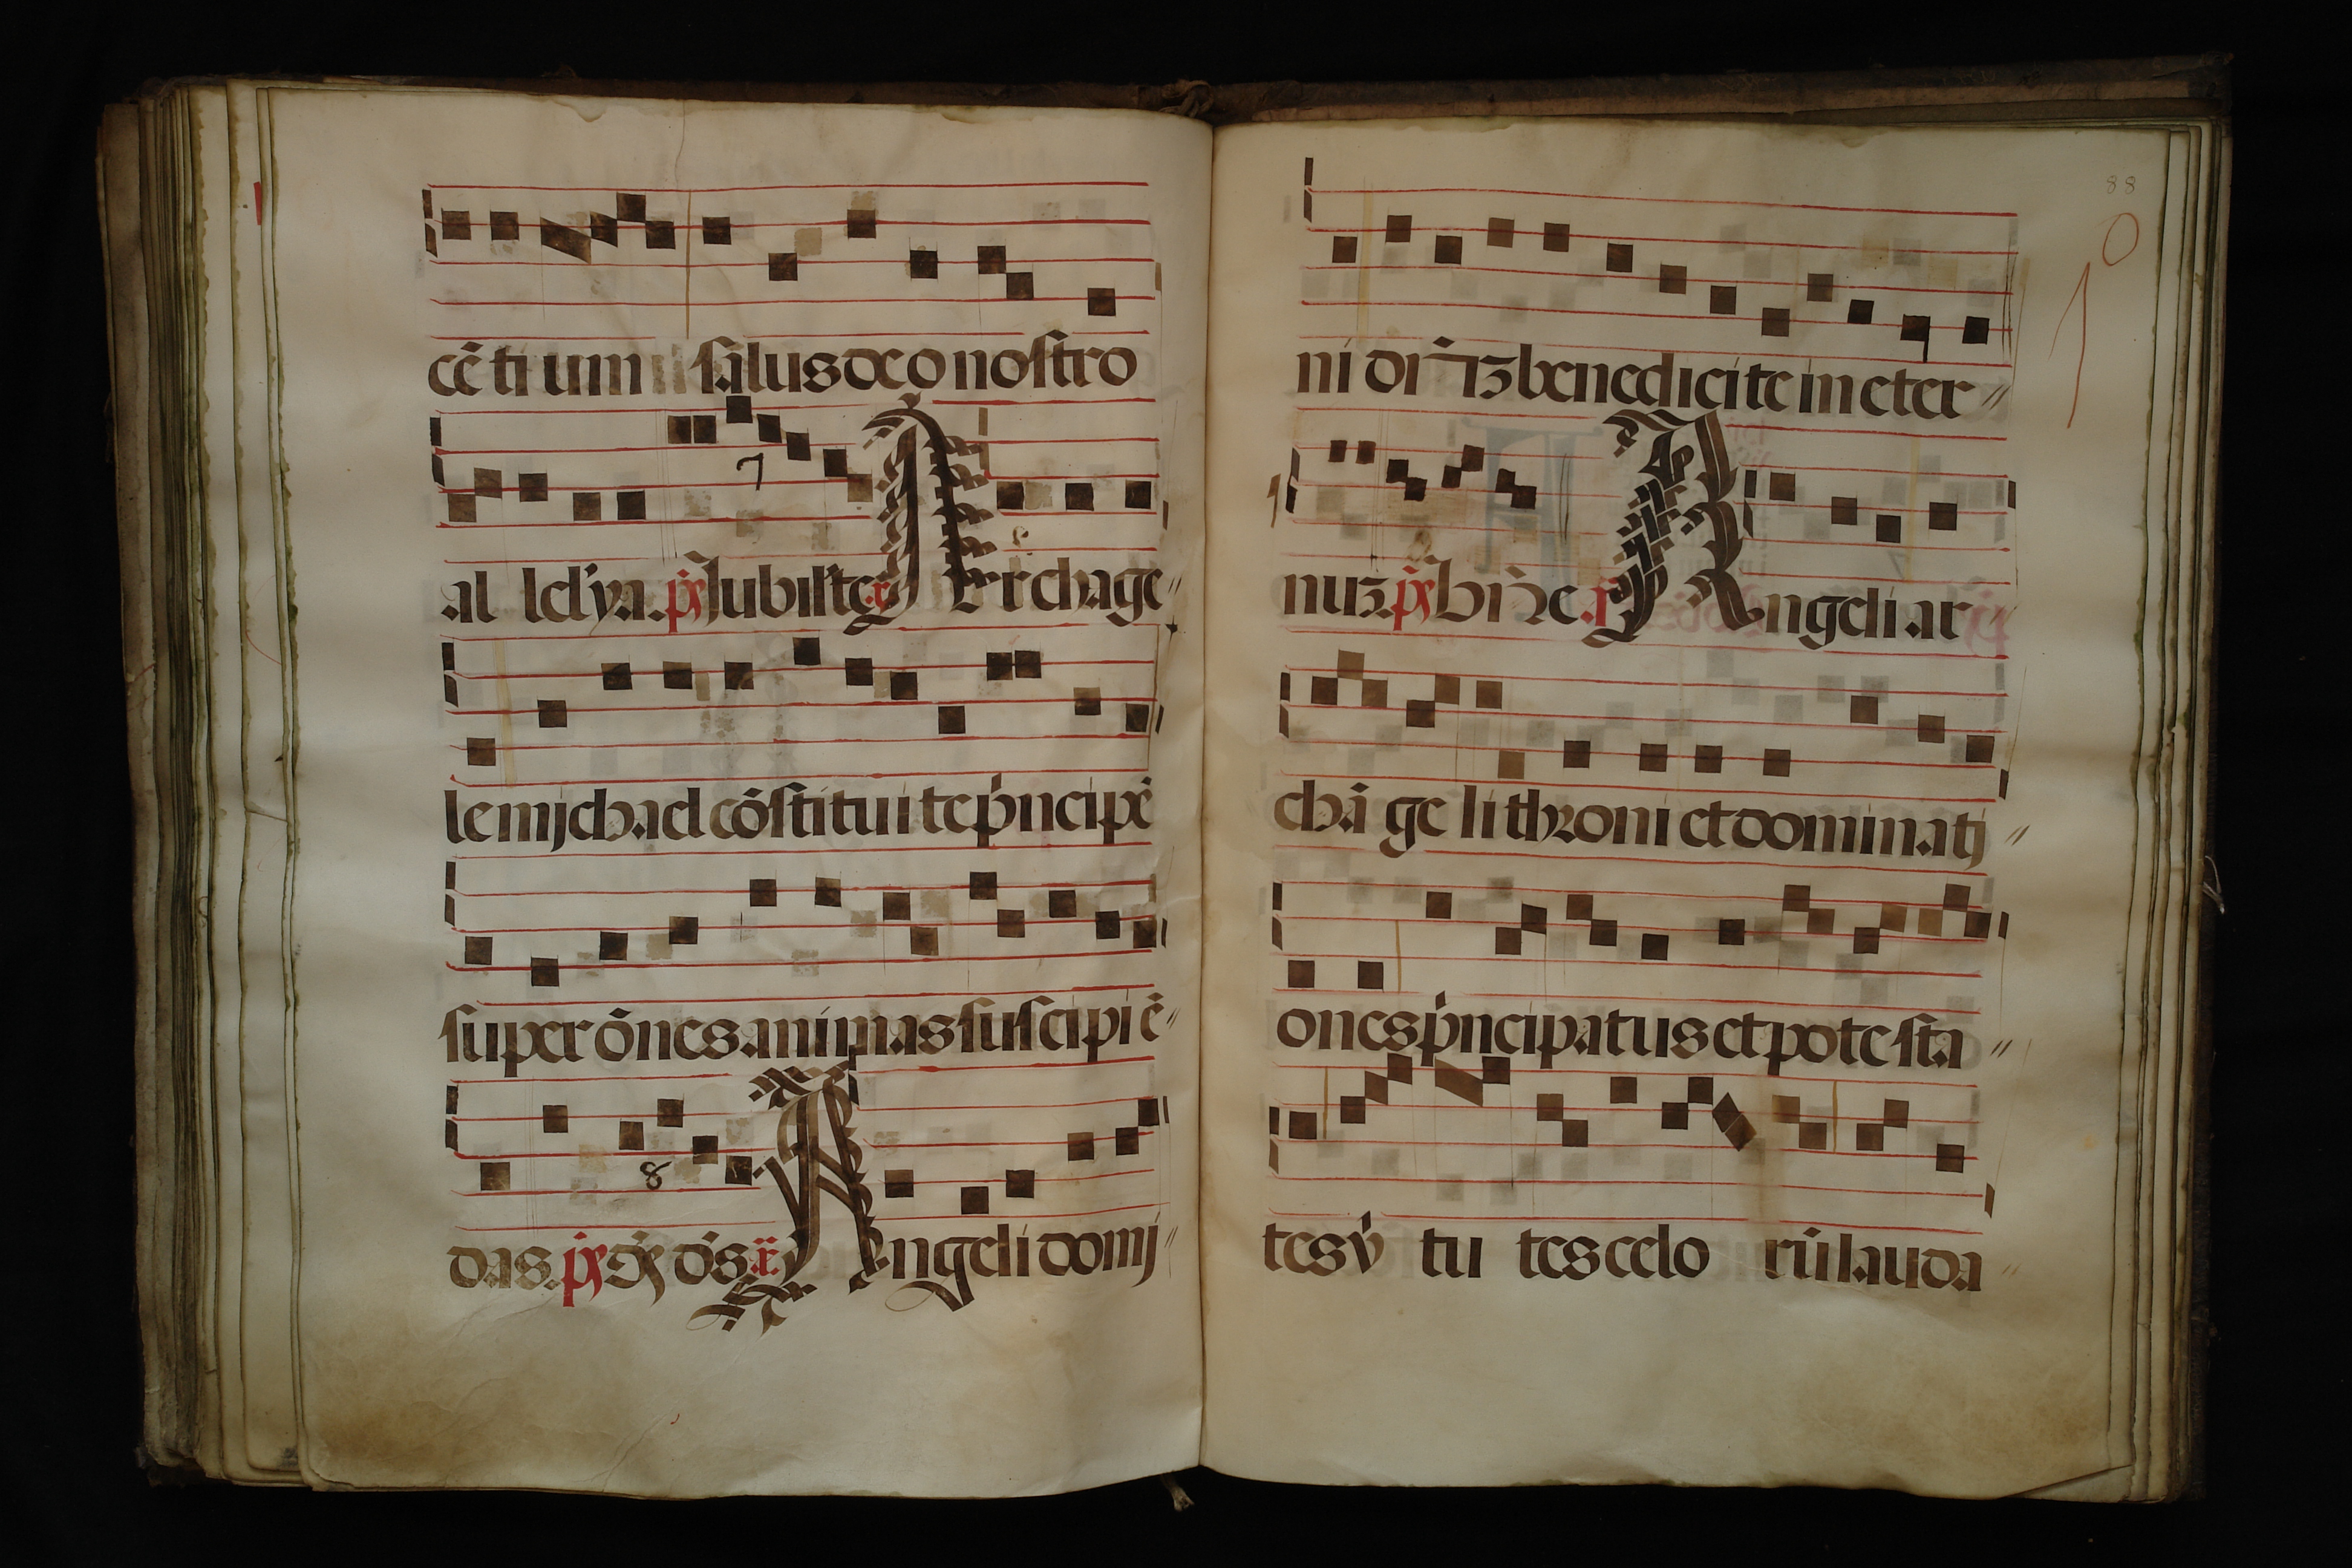 cẽ ti um salus deo nostro
7
al lelỹa. ps Jubilate Archãge
le mjchael cõstitui te pͥncipẽ
super õnes animas suscipiẽ
8
das. ps ds Angeli domj
88
10
ni dñm benedicite in eter
nuʒ. ps Angeli ar
chã ge li throni et dominatj
ones pͥncipatus et potesta
tes vͥ tu tes celo rũ lauda